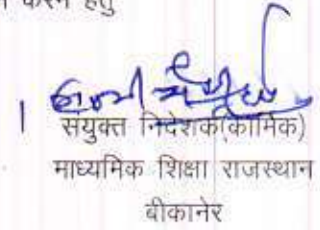 करने हेतु
संयुक्त निदेशक(कार्मिक)
माध्यमिक शिक्षा राजस्थान
बीकानेर